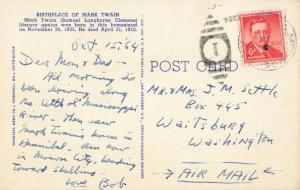 BIRTHPLACE OF MARK TWAIN
Mark Twain (Samuel Langhorne Clemens)
literary genius was born in this homestead
on November 30, 1835. He died April 21, 1910.
Oct. 15, 64
Dear Mom & Dad -
All morning I've
been driving along
the Little ol' Mississippi
River. Then saw
Mark Twain's house in
Hannibal. Am now
in Monroe City, heading
toward
Love Bob
POST CARD
1
6¢
Mr. & Mrs. J. M. Settle
Box 445
Waitsburg
Washington
AIR MAIL